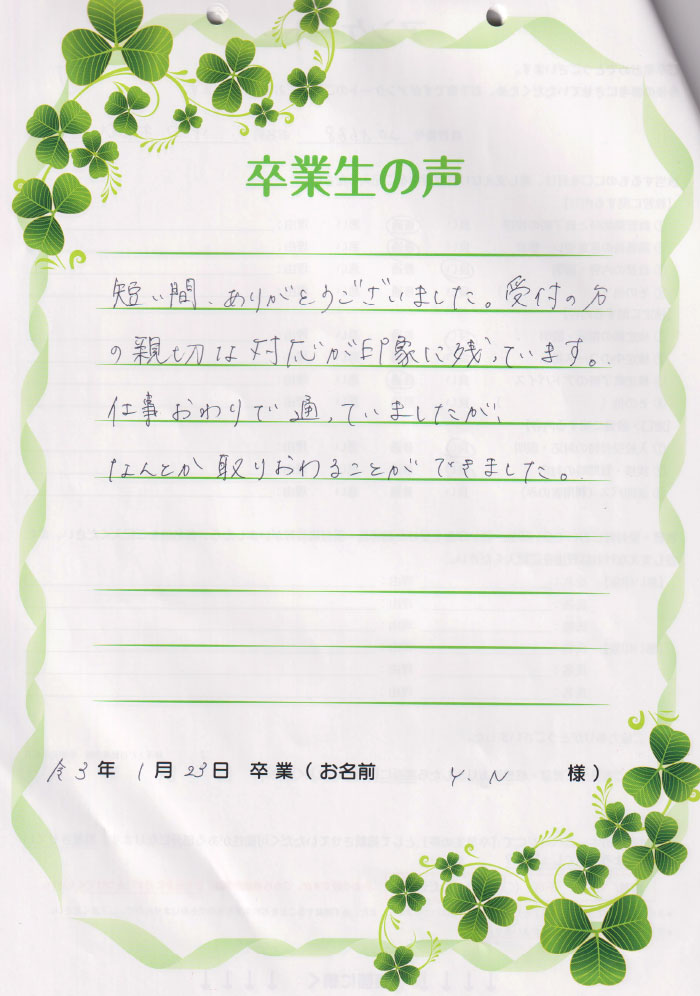 卒業生の声
短い間、ありがとうございました。受付の方
の親切な対応が印象に残っています。
仕事おわりで通っていましたが、
なんとか取りおわることができました。
令3年 1月23日 卒業(お名前 Y.N 様)